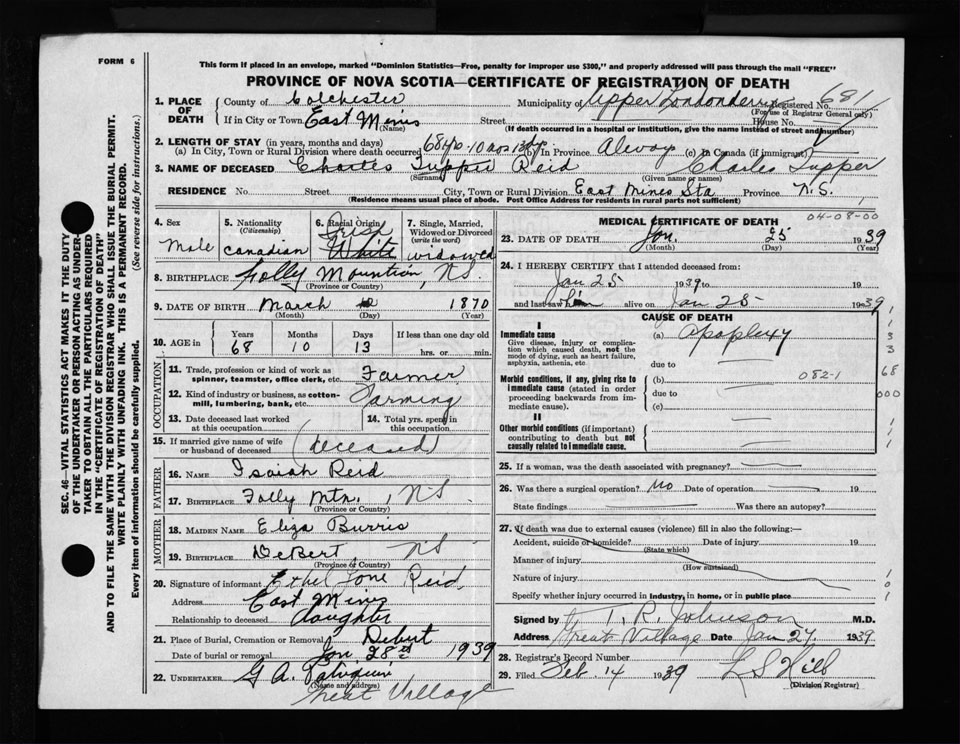 FORM 6
This form if placed in an envelope, marked "Dominion Statistics—Free, penalty for improper use $300," and properly addressed will pass through the mail "FREE"
PROVINCE OF NOVA SCOTIA—CERTIFICATE OF REGISTRATION OF DEATH
1. PLACE OF DEATH County of Colchester Municipality of Upper Londonderry Registered No. 681
(For use of Registrar General only)
If in City or Town East Mines Street House No.
(Name) (If death occurred in a hospital or institution, give the name instead of street and number)
2. LENGTH OF STAY (in years, months and days)
(a) In City, Town or Rural Division where death occurred 68 yrs 10 mos 13 dys (b) in Province Always (c) In Canada (if immigrant)
3. NAME OF DECEASED Charles Tupper Reid Charles Tupper
(Surname) (Given name or names)
RESIDENCE No. Street City, Town or Rural Division East Mines Sta Province N.S.
(Residence means usual place of abode. Post Office Address for residents in rural parts not sufficient)
4. Sex Male
5. Nationality (Citizenship) Canadian
6. Racial Origin Irish White
7. Single, Married, Widowed or Divorced (write the word) widowed
8. BIRTHPLACE Folly Mountain, N.S.
(Province or Country)
9. DATE OF BIRTH March 12 1870
(Month) (Day) (Year)
10. AGE in Years 68 Months 10 Days 13 If less than one day old hrs. or min.
OCCUPATION
11. Trade, profession or kind of work as spinner, teamster, office clerk, etc. Farmer
12. Kind of industry or business, as cotton-mill, lumbering, bank, etc. Farming
13. Date deceased last worked at this occupation
14. Total yrs. spent in this occupation
15. If married give name of wife or husband of deceased (deceased)
FATHER
16. NAME Isaiah Reid
17. BIRTHPLACE Folly Mtn., N.S.
(Province or Country)
MOTHER
18. MAIDEN NAME Eliza Burris
19. BIRTHPLACE DeBert, N.S.
(Province or Country)
20. Signature of informant Ethel Reid
Address East Mines
Relationship to deceased daughter
21. Place of Burial, Cremation or Removal Debert
Date of burial or removal Jan 28th 1939
22. UNDERTAKER G. A.
(Name and address)
Great Village
MEDICAL CERTIFICATE OF DEATH 04-08-00
23. DATE OF DEATH Jan. 25 1939
(Month) (Day) (Year)
24. I HEREBY CERTIFY that I attended deceased from:
Jan 25 1939 to 19
and last saw him alive on Jan 25 1939
CAUSE OF DEATH
I
Immediate cause
Give disease, injury or complication which caused death, not the mode of dying, such as heart failure, asphyxia, asthenia, etc.
(a) Apoplexy
due to
Morbid conditions, if any, giving rise to immediate cause (stated in order proceeding backwards from immediate cause).
(b) 082-1
due to
(c)
II
Other morbid conditions (if important) contributing to death but not causally related to immediate cause.
1
1
3
3
68
000
1
1
1
25. If a woman, was the death associated with pregnancy?
26. Was there a surgical operation? No Date of operation 19
State findings Was there an autopsy?
27. If death was due to external causes (violence) fill in also the following:—
Accident, suicide or homicide? Date of injury 19
(State which)
Manner of injury
(How sustained)
Nature of injury
Specify whether injury occurred in industry, in home, or in public place
1
0
1
Signed by T. R. Johnson M.D.
Address Great Village Date Jan 27, 1939
28. Registrar's Record Number
29. Filed Feb. 14 1939 L S Hill
(Division Registrar)
SEC. 46—VITAL STATISTICS ACT MAKES IT THE DUTY
OF THE UNDERTAKER OR PERSON ACTING AS UNDER-
TAKER TO OBTAIN ALL THE PARTICULARS REQUIRED
IN THE "CERTIFICATE OF REGISTRATION OF DEATH"
AND TO FILE THE SAME WITH THE DIVISION REGISTRAR WHO SHALL ISSUE THE BURIAL PERMIT.
WRITE PLAINLY WITH UNFADING INK. THIS IS A PERMANENT RECORD.
Every item of information should be carefully supplied. (See reverse side for instructions.)